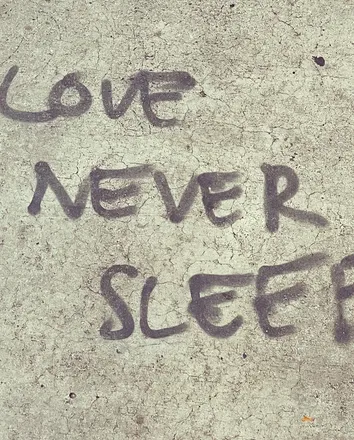 LOVE
NEVER
SLEEP